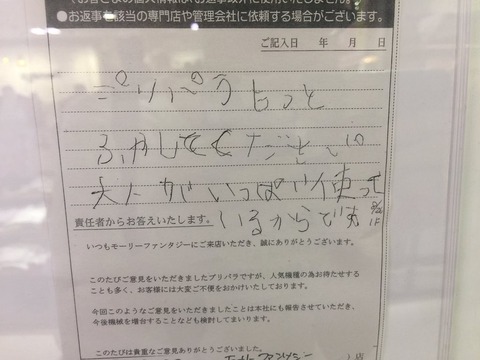 ●お返事を該当の専門店や管理会社に依頼する場合がございます。
ご記入日 年 月 日
プリパラもっと
ふやしてください
大人がいっぱい使って
責任者からお答えいたします。 いるからです
1F
いつもモーリーファンタジーにご来店いただき、誠にありがとうございます。
このたびご意見をいただきましたプリパラですが、人気機種の為お待たせする
ことも多く、お客様には大変ご不便をおかけいたしております。
今回このようなご意見をいただきましたことは本社にも報告させていただき、
今後機械を増台することなども検討してまいります。
このたびは貴重なご意見ありがとうございました。
店